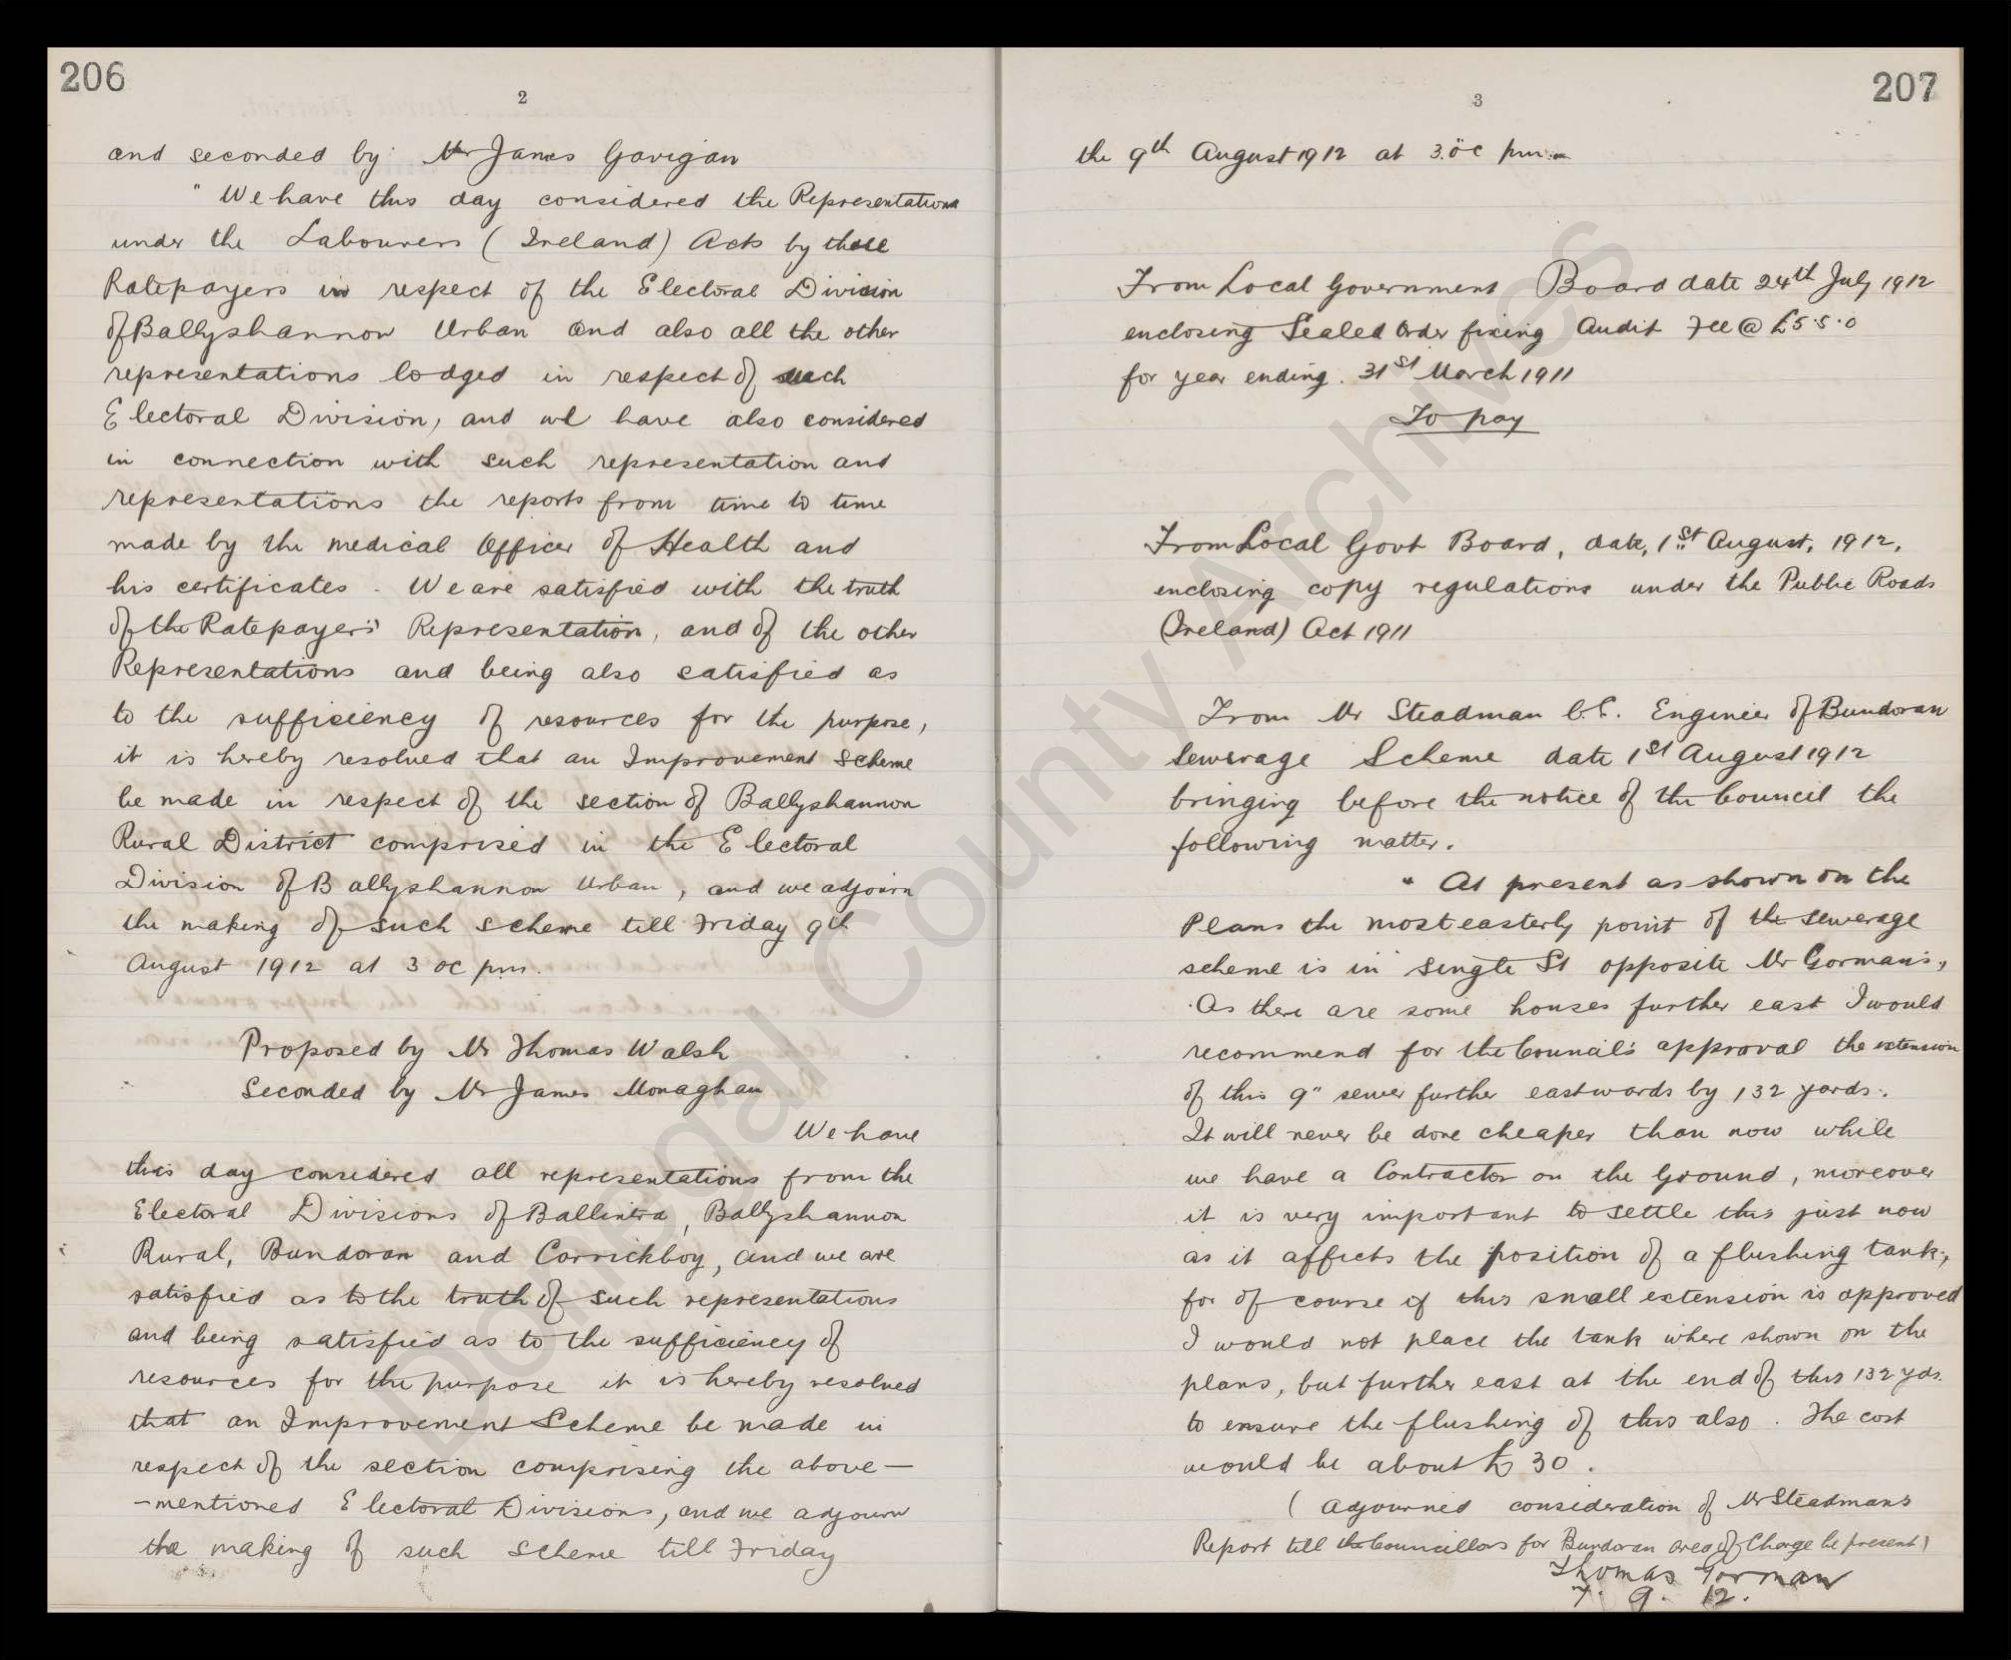 206
2
and seconded by Mr James Gavigan
"We have this day considered the Representations
under the Labourers (Ireland) Acts by three
Ratepayers in respect of the Electoral Division
of Ballyshannon Urban and also all the other
representations lodged in respect of such
Electoral Division, and we have also considered
in connection with such representation and
representations the reports from time to time
made by the medical Officer of Health and
his certificates. We are satisfied with the truth
of the Ratepayers' Representation, and of the other
Representations and being also satisfied as
to the sufficiency of resources for the purpose,
it is hereby resolved that an Improvement Scheme
be made in respect of the section of Ballyshannon
Rural District comprised in the Electoral
Division of Ballyshannon Urban, and we adjourn
the making of such scheme till Friday 9th
August 1912 at 3 oc pm.
Proposed by Mr Thomas Walsh
Seconded by Mr James Monaghan
We have
this day considered all representations from the
Electoral Divisions of Ballintra, Ballyshannon
Rural, Bundoran and Carrickboy, and we are
satisfied as to the truth of such representations
and being satisfied as to the sufficiency of
resources for the purpose it is hereby resolved
that an Improvement Scheme be made in
respect of the section comprising the above-
-mentioned Electoral Divisions, and we adjourn
the making of such scheme till Friday
207
3
the 9th August 1912 at 3 oc pm.
From Local Government Board date 24th July 1912
enclosing Sealed Order fixing Audit Fee @ £5.5.0
for year ending. 31st March 1911
To pay
From Local Govt Board, date, 1st August, 1912,
enclosing copy regulations under the Public Roads
(Ireland) Act 1911
From Mr Steadman C.E. Engineer of Bundoran
Sewerage Scheme date 1st August 1912
bringing before the notice of the Council the
following matter.
"At present as shown on the
Plans the most easterly point of the sewerage
scheme is in Single St opposite Mr Gorman's,
As there are some houses further east I would
recommend for the Council's approval the extension
of this 9" sewer further eastwards by 132 yards.
It will never be done cheaper than now while
we have a Contractor on the Ground, moreover
it is very important to settle this just now
as it affects the position of a flushing tank,
for of course if this small extension is approved
I would not place the tank where shown on the
plans, but further east at the end of this 132 yds.
to ensure the flushing of this also. The cost
would be about £30.
(Adjourned consideration of Mr Steadmans
Report till the Councillors for Bundoran area of Charge be present)
Thomas Gorman
7. 9. 12.
Donegal County Archives